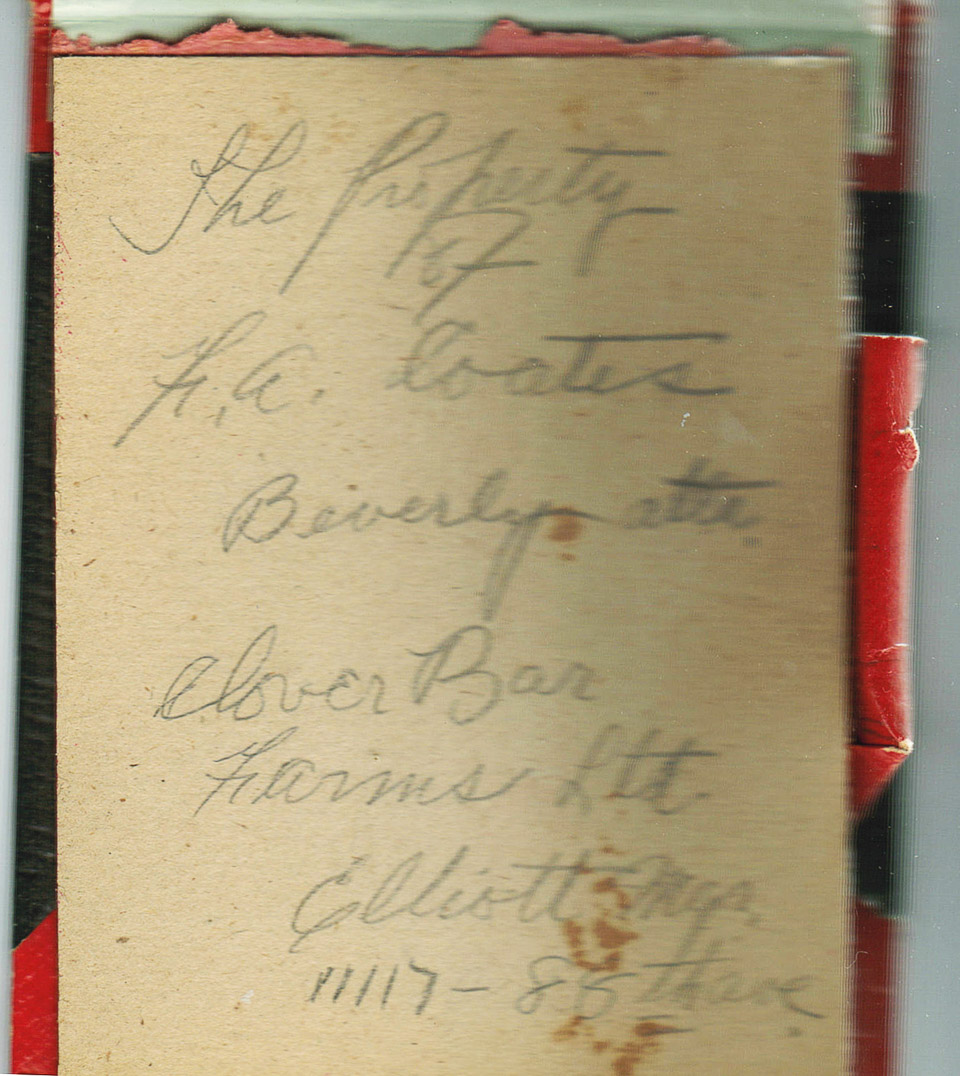 The Property
of
F.A. Coates
Beverly alta
Clover Bar
Farms Ltd.
Elliott Mgr.
11117 - 85th ave